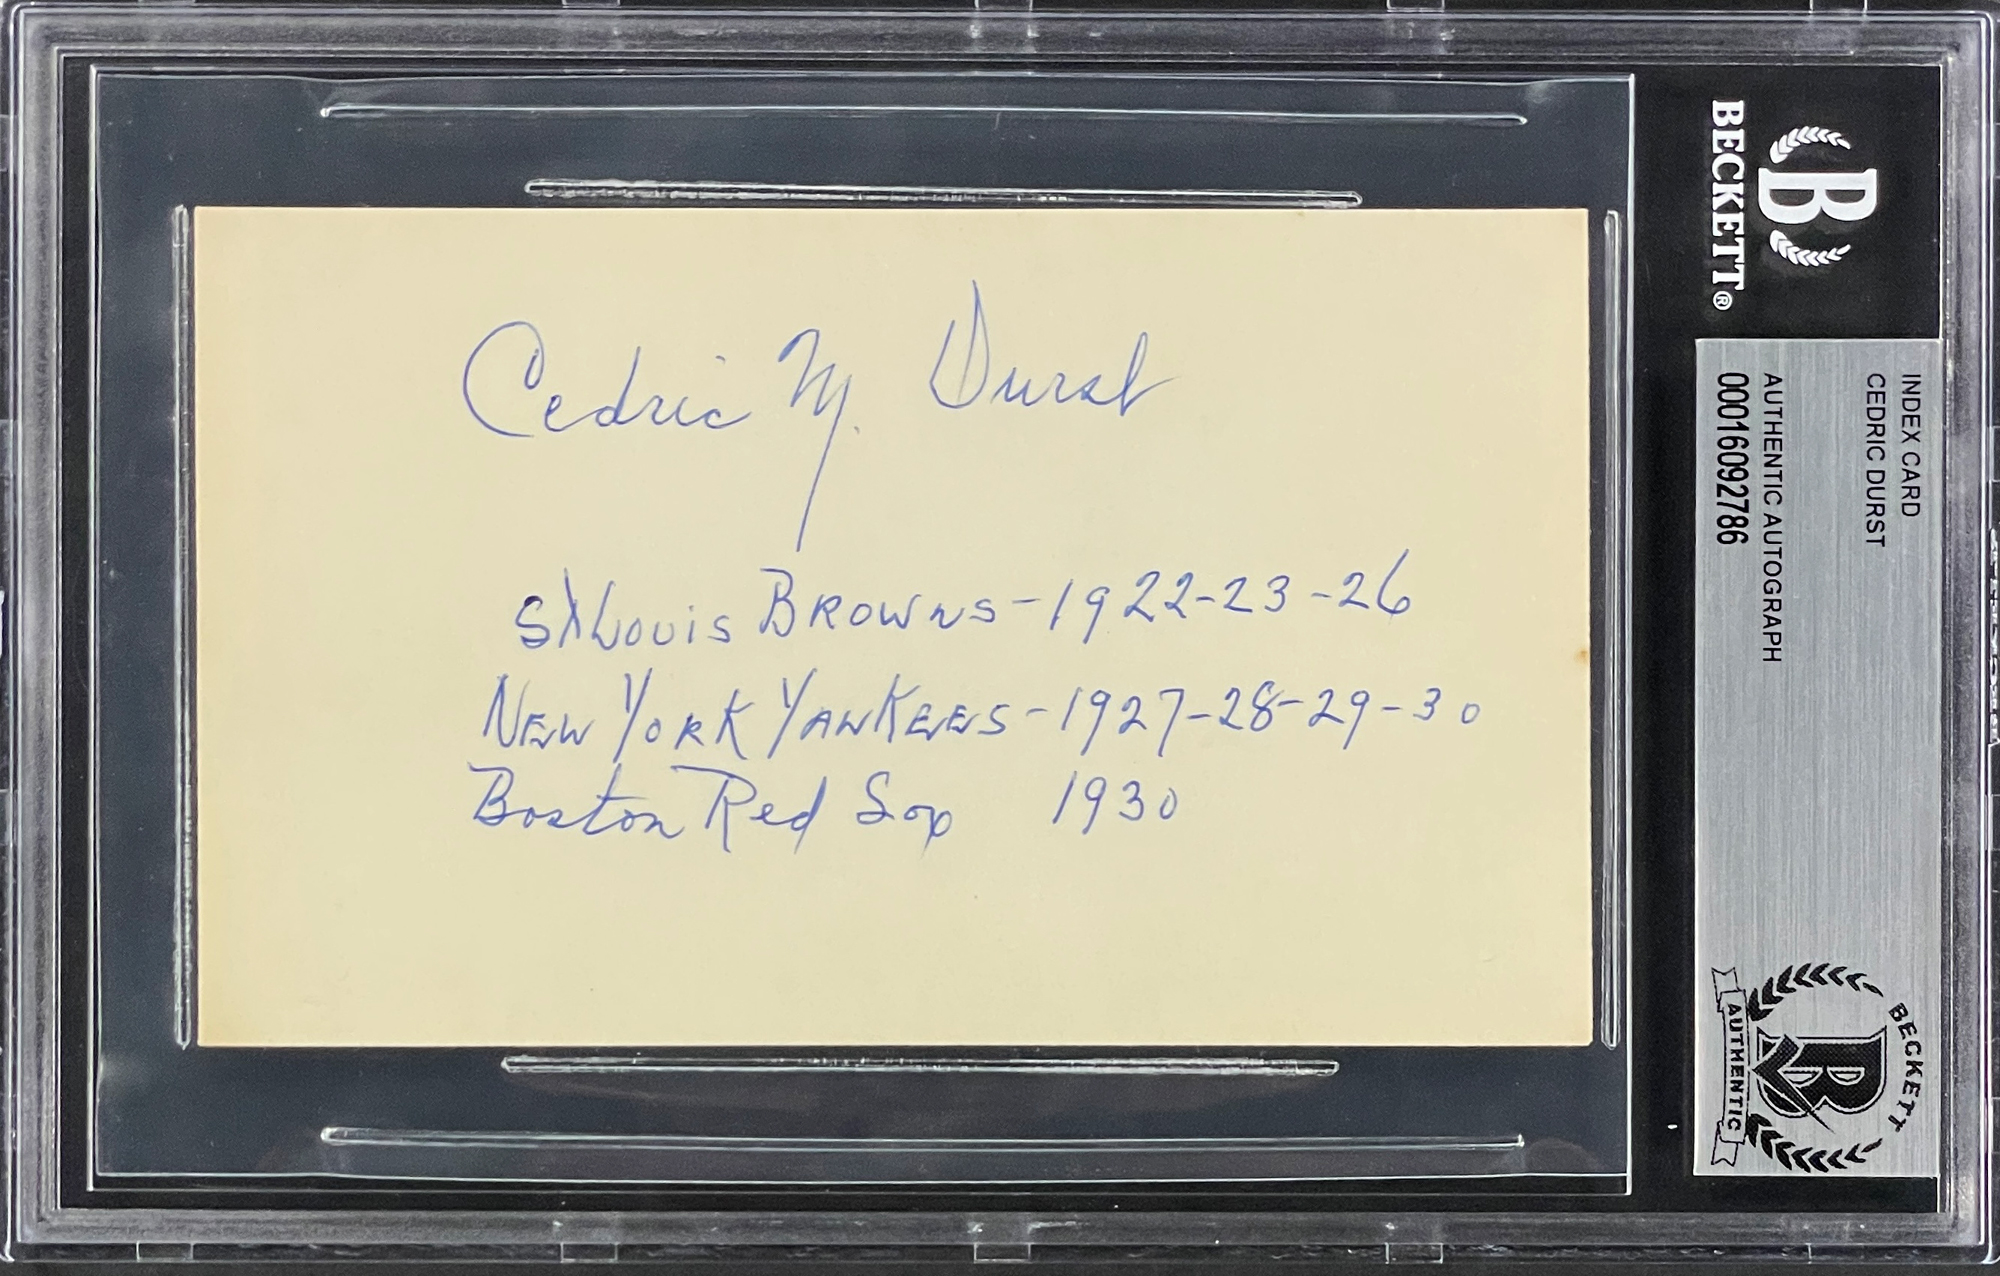 Cedric M. Durst
St Louis Browns-1922-23-26
New York Yankees-1927-28-29-30
Boston Red Sox 1930
BECKETT®
B
INDEX CARD
CEDRIC DURST
AUTHENTIC AUTOGRAPH
00016092786
BECKETT
B
AUTHENTIC